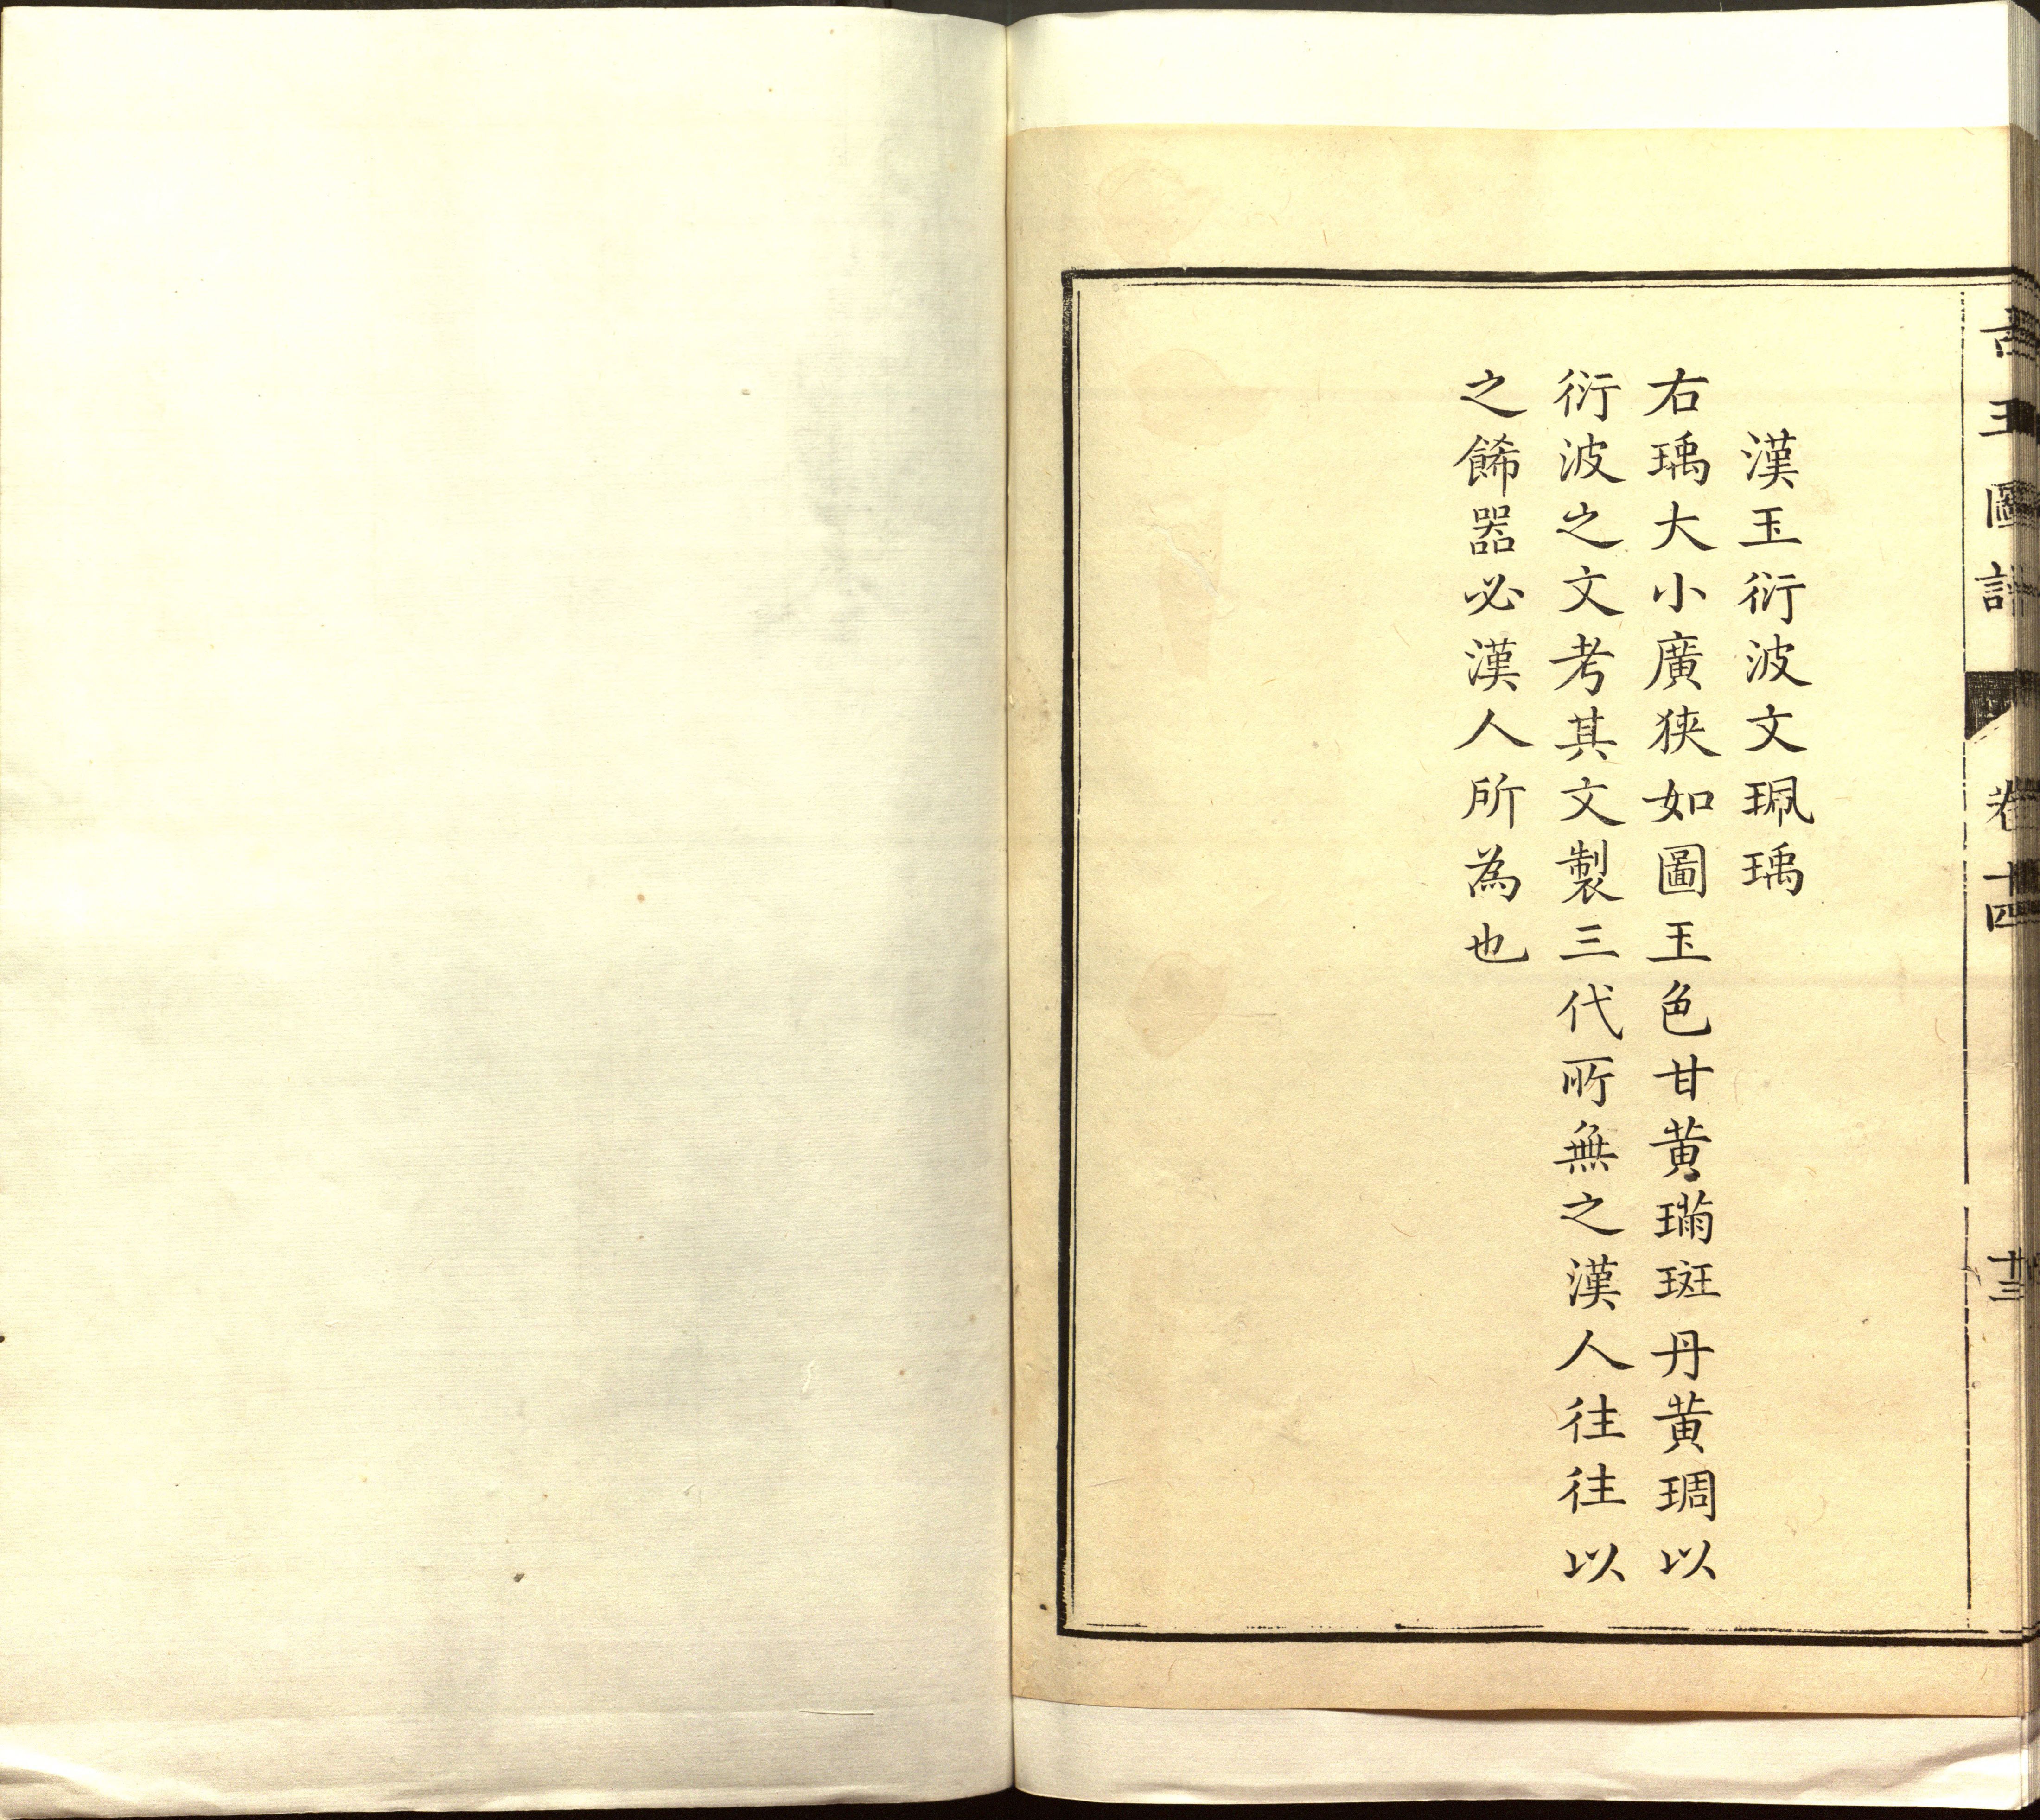 古玉圖譜 卷十四
漢玉衍波文珮瑀
右瑀大小廣狹如圖玉色甘黃璊斑丹黃琱以
衍波之文考其文製三代所無之漢人往往以
之餙器必漢人所為也